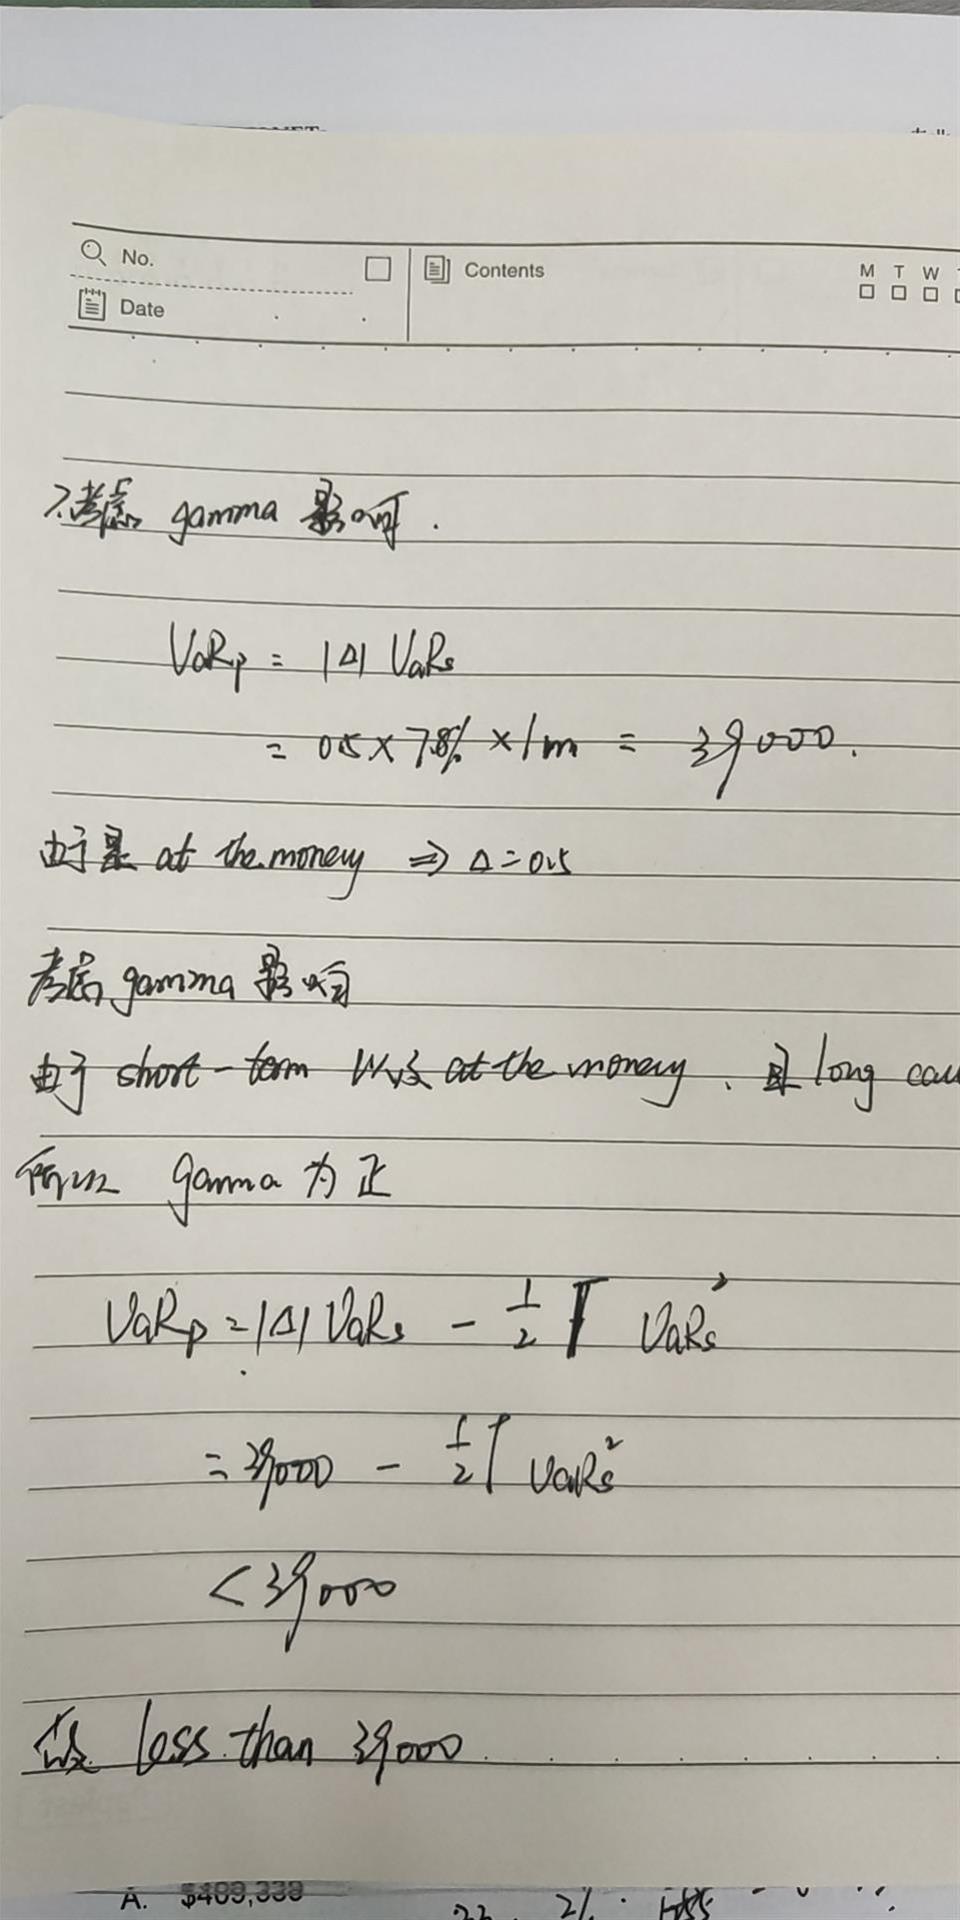 No.
Contents
M T W
Date
不考虑 gamma 影响.
VaRp = |Δ| VaRs
= 0.5 × 7.8% × 1m = 39000.
由于是 at the money ⇒ Δ=0.5
考虑 gamma 影响
由于 short-term at the money, 且 long call
所以 gamma 为正
VaRp = |Δ| VaRs - 1/2 Γ VaRs²
= 39000 - 1/2 Γ VaRs²
< 39000
less than 39000
A. $489,339